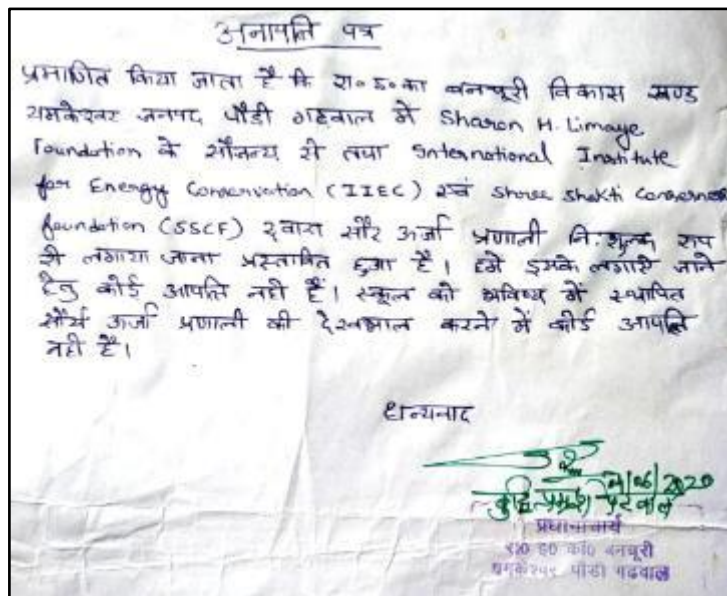 अनापत्ति पत्र
प्रमाणित किया जाता है कि रा० इ० का बनचूरी विकास खण्ड
यमकेश्वर जनपद पौडी गढ़वाल में Sharon H. Limaye
Foundation के सौजन्य से तथा International Institute
for Energy Conservation (IIEC) एवं Shree Shakti
foundation (SSCF) द्वारा सौर ऊर्जा प्रणाली नि:शुल्क रूप
से लगाया जाना प्रस्तावित हुआ है। हमें इसके लगाये जाने
हेतु कोई आपत्ति नही हैं। स्कूल को भविष्य में स्थापित
सौर्य ऊर्जा प्रणाली की देखभाल करने में कोई आपत्ति
नही है।
धन्यवाद
06/2020
प्रधानाचार्य
रा० इ० का० बनचूरी
यमकेश्वर पौडी गढवाल